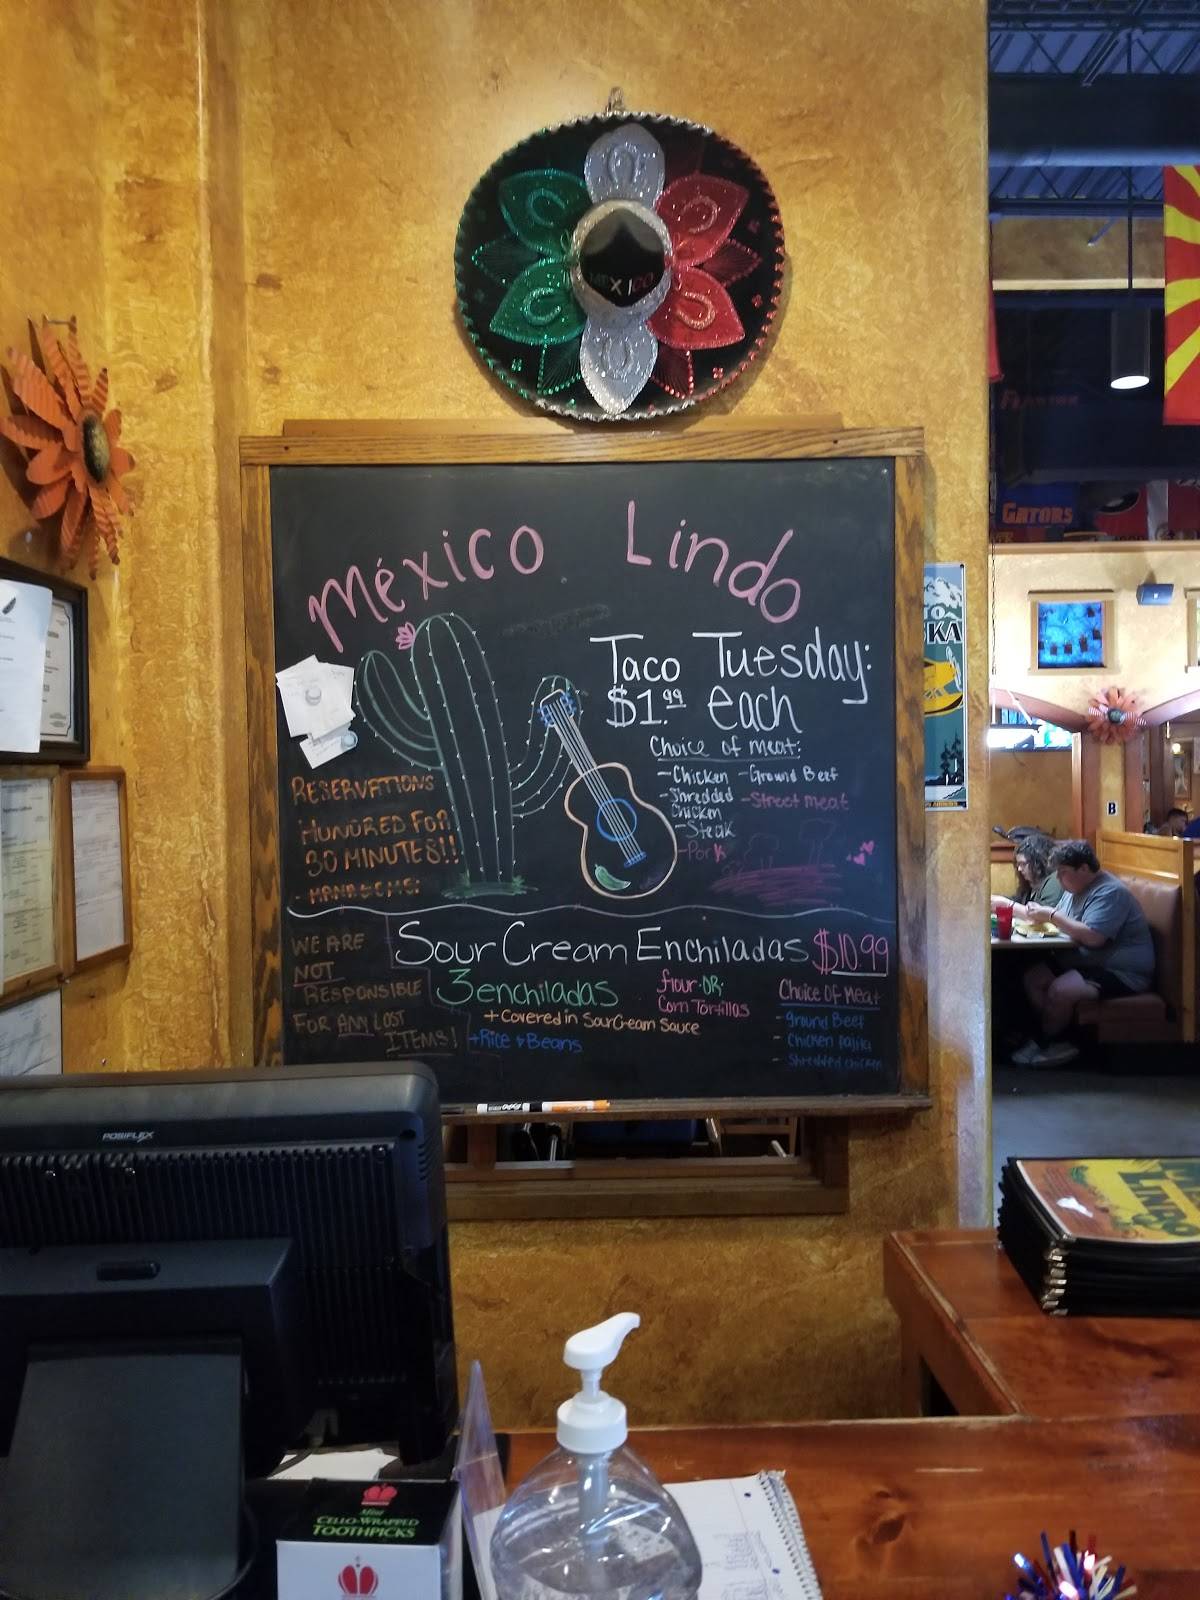 MEXICO
México Lindo
Taco Tuesday:
$1.99 each
Choice of meat:
- Chicken - Ground Beef
- Shredded Chicken - Street meat
- Steak
- Pork
RESERVATIONS
HUNORED FOR
30 MINUTES!!
WE ARE
NOT
RESPONSIBLE
FOR ANY LOST
ITEMS!
Sour Cream Enchiladas $10.99
3 enchiladas
+ Covered in Sour Cream Sauce
+ Rice & Beans
flour OR
Corn Tortillas
Choice of Meat
- Ground Beef
- Chicken fajita
- Shredded chicken
GATORS
KA
B
POSIFLEX
EXPO
LINDO
Mint
CELLO-WRAPPED
TOOTHPICKS